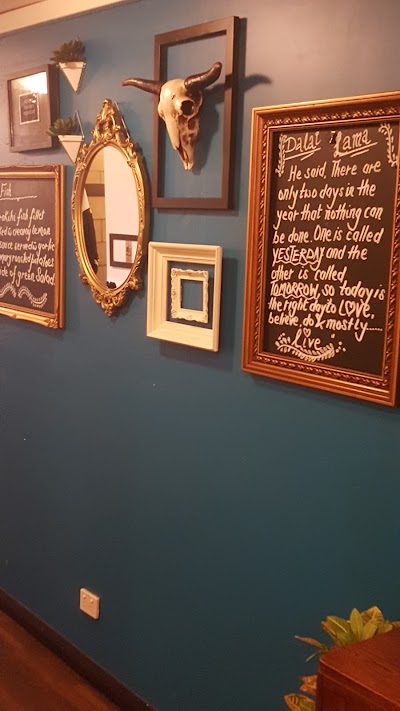 Fish
fish fillet
creamy lemon
sauce served garlic
rosemary roasted potatoes
side of green Salad
Dalai Lama
He said, There are
only two days in the
year that nothing can
be done. One is called
YESTERDAY and the
other is called
TOMORROW, so today is
the right day to LOVE,
believe, do & mostly.....
Live